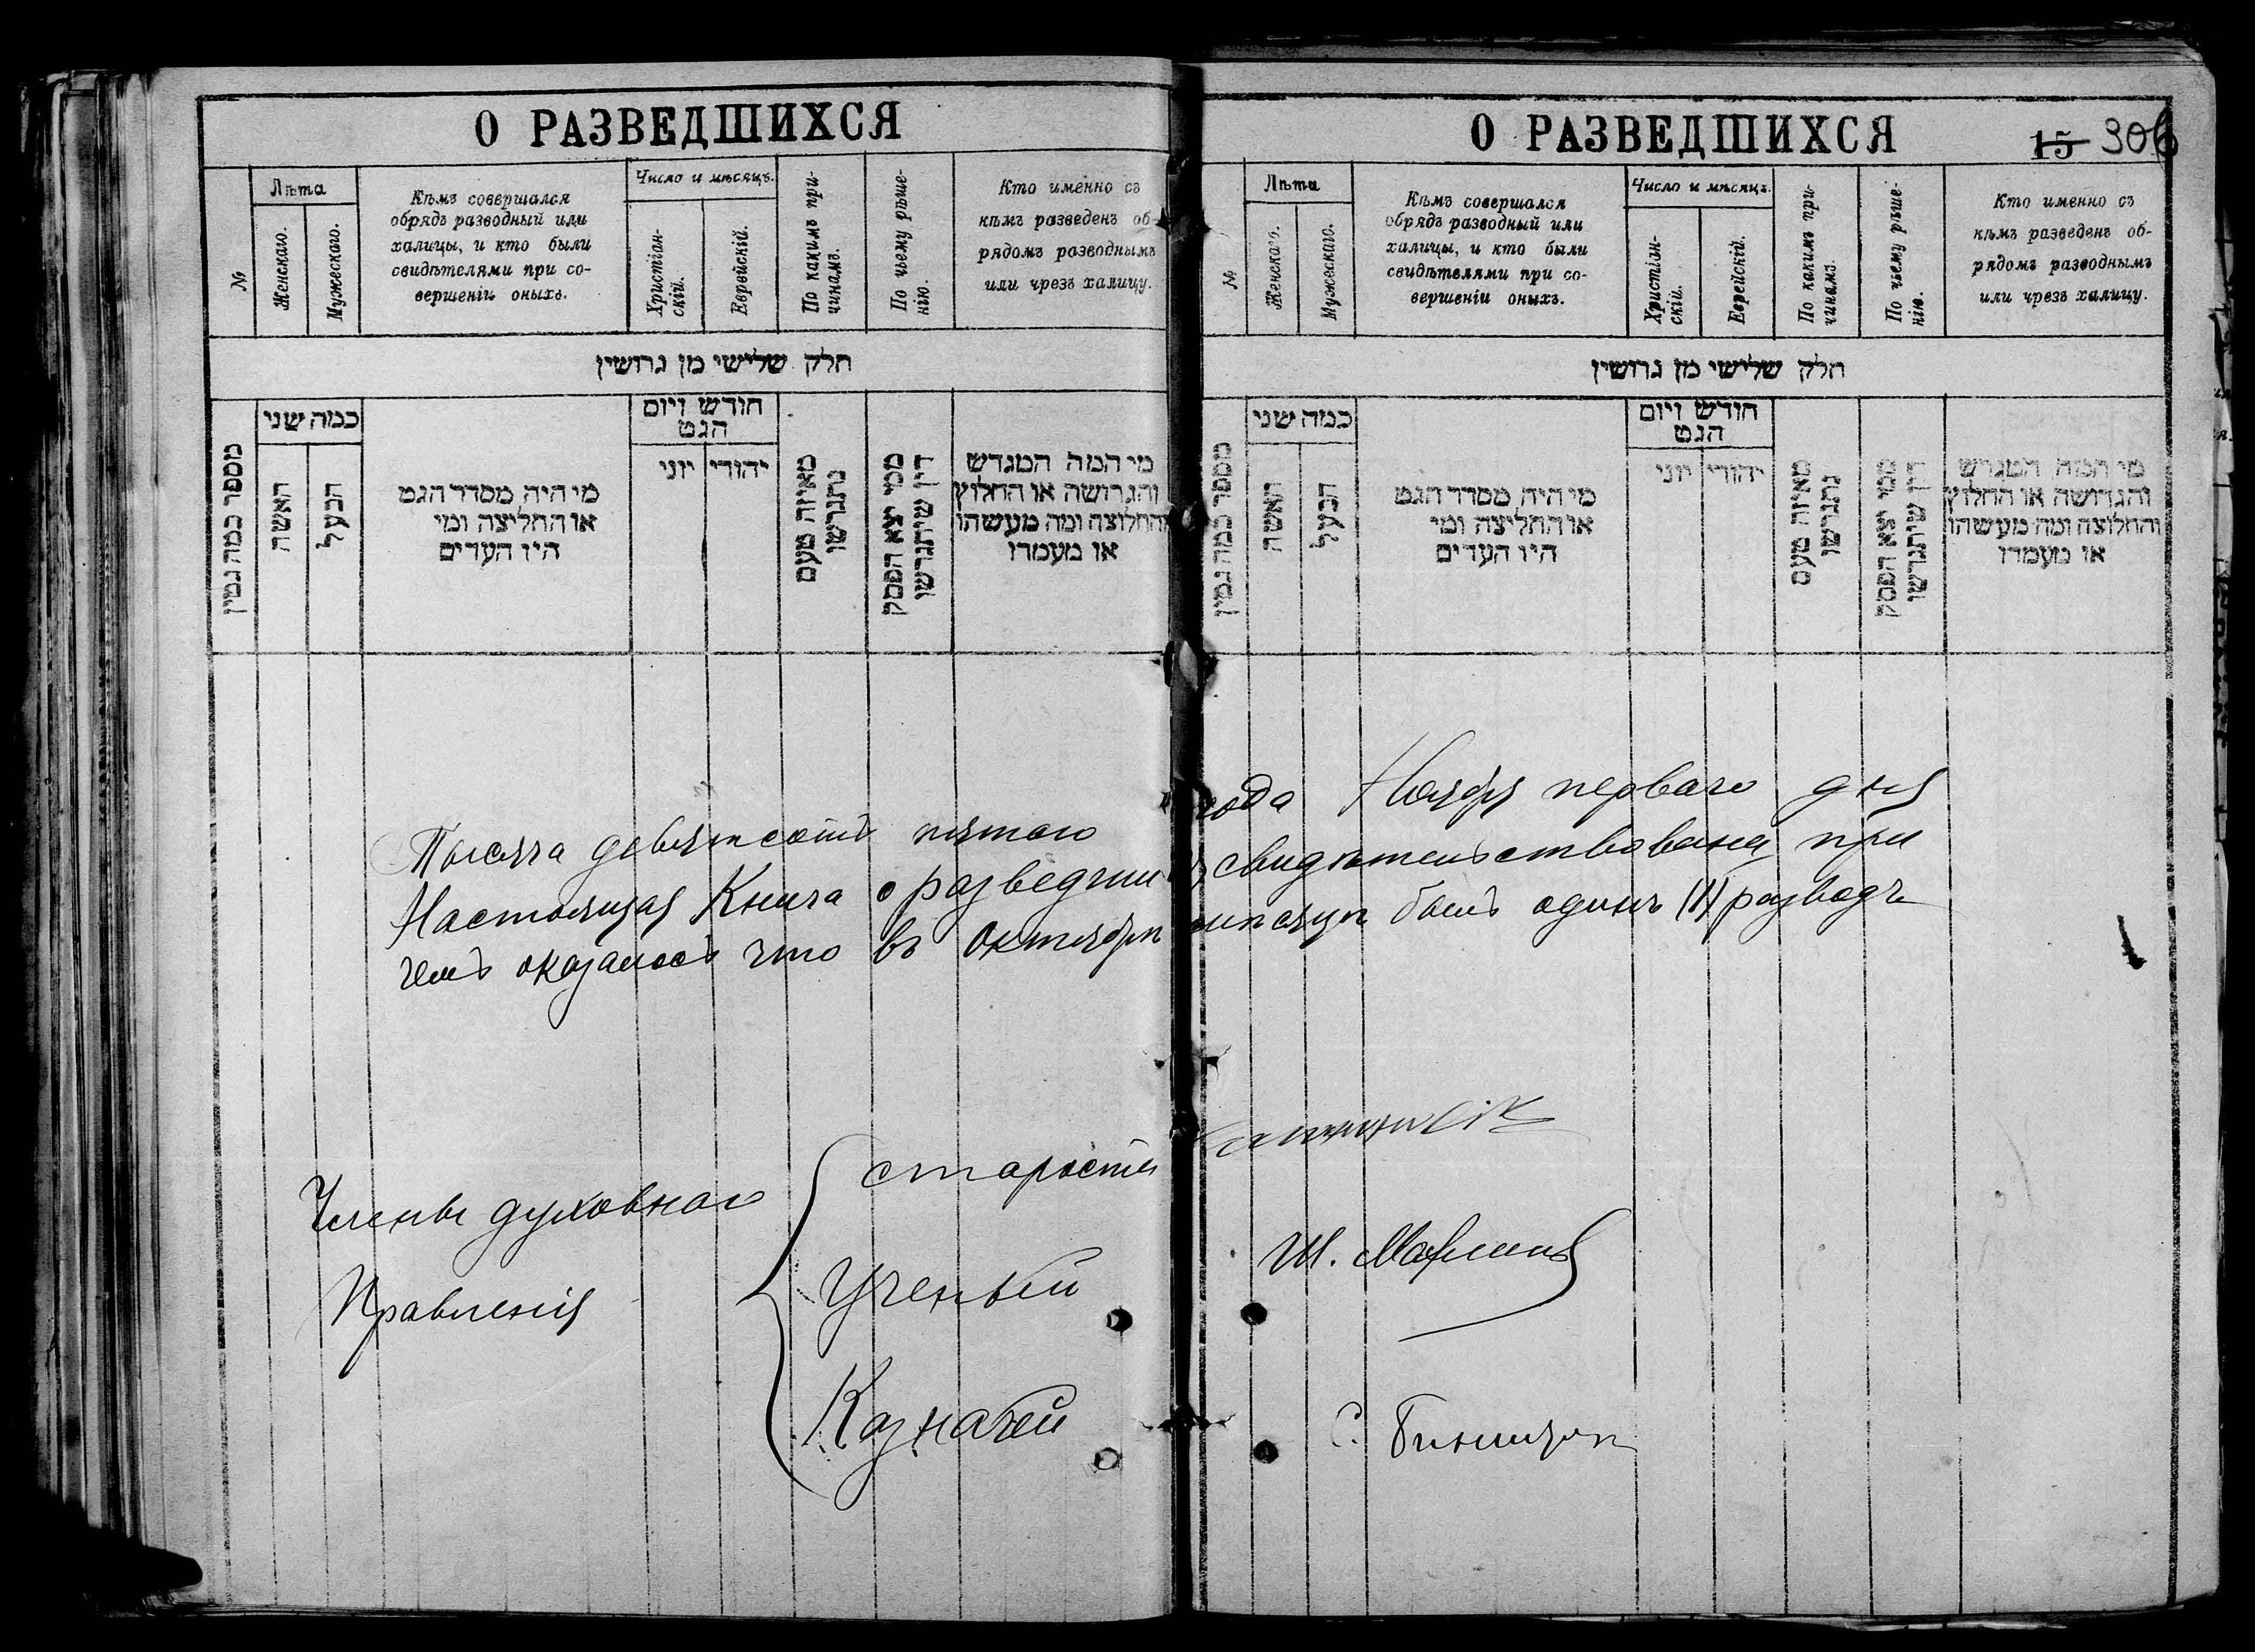 О РАЗВЕДШИХСЯ
№
Лѣта
Женскаго.
Мужескаго.
Кѣмъ совершался
обрядъ разводный или
халицы, и кто были
свидѣтелями при со-
вершеніи оныхъ.
Число и мѣсяцъ.
Христіан-
скій.
Еврейскій.
По какимъ при-
чинамъ.
По чьему рѣше-
нію.
Кто именно съ
кѣмъ разведенъ об-
рядомъ разводнымъ
или чрезъ халицу.
חלק שלישי מן גרושין
מספר כמה גטין
כמה שני
האשה
הבעל
מי היה מסדר הגט
או החליצה ומי
היו העדים
חודש ויום
הגט
יהודי
יוני
מאיזה טעם
נתגרשו
ממי יצא הפסק
דין שיתגרשו
מי המה המגרש
והגרושה או החלוץ
והחלוצה ומה מעשהו
או מעמדו
О РАЗВЕДШИХСЯ
15 306
№
Лѣта
Женскаго.
Мужескаго.
Кѣмъ совершался
обрядъ разводный или
халицы, и кто были
свидѣтелями при со-
вершеніи оныхъ.
Число и мѣсяцъ.
Христіан-
скій.
Еврейскій.
По какимъ при-
чинамъ.
По чьему рѣше-
нію.
Кто именно съ
кѣмъ разведенъ об-
рядомъ разводнымъ
или чрезъ халицу.
חלק שלישי מן גרושין
מספר כמה גטין
כמה שני
האשה
הבעל
מי היה מסדר הגט
או החליצה ומי
היו העדים
חודש ויום
הגט
יהודי
יוני
מאיזה טעם
נתגרשו
ממי יצא הפסק
דין שיתגרשו
מי המה המגרש
והגרושה או החלוץ
והחלוצה ומה מעשהו
או מעמדו
Тысяча девятсотъ пятого года Ноября перваго дня
Настоящая Книга о разведших свидѣтельствована при
чемъ оказалось что въ Октябрѣ мѣсяцѣ былъ одинъ (1) разводъ
Члены духовнаго
Правленія
староста
Ученый
Ш.
Казначей
С.